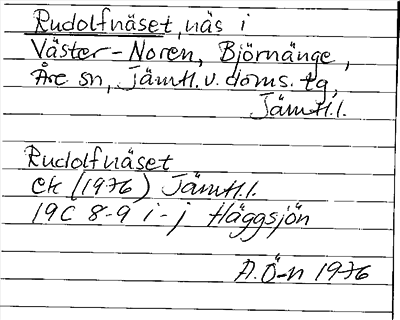 Rudolfnäset, näs i
Väster-Noren, Björnänge,
Åre sn, Jämtl. v. doms. tg,
Jämtl. l.
Rudolfnäset
ek (1976) Jämtl. l.
19C 8-9 i-j Häggsjön
A. Ö-n 1976